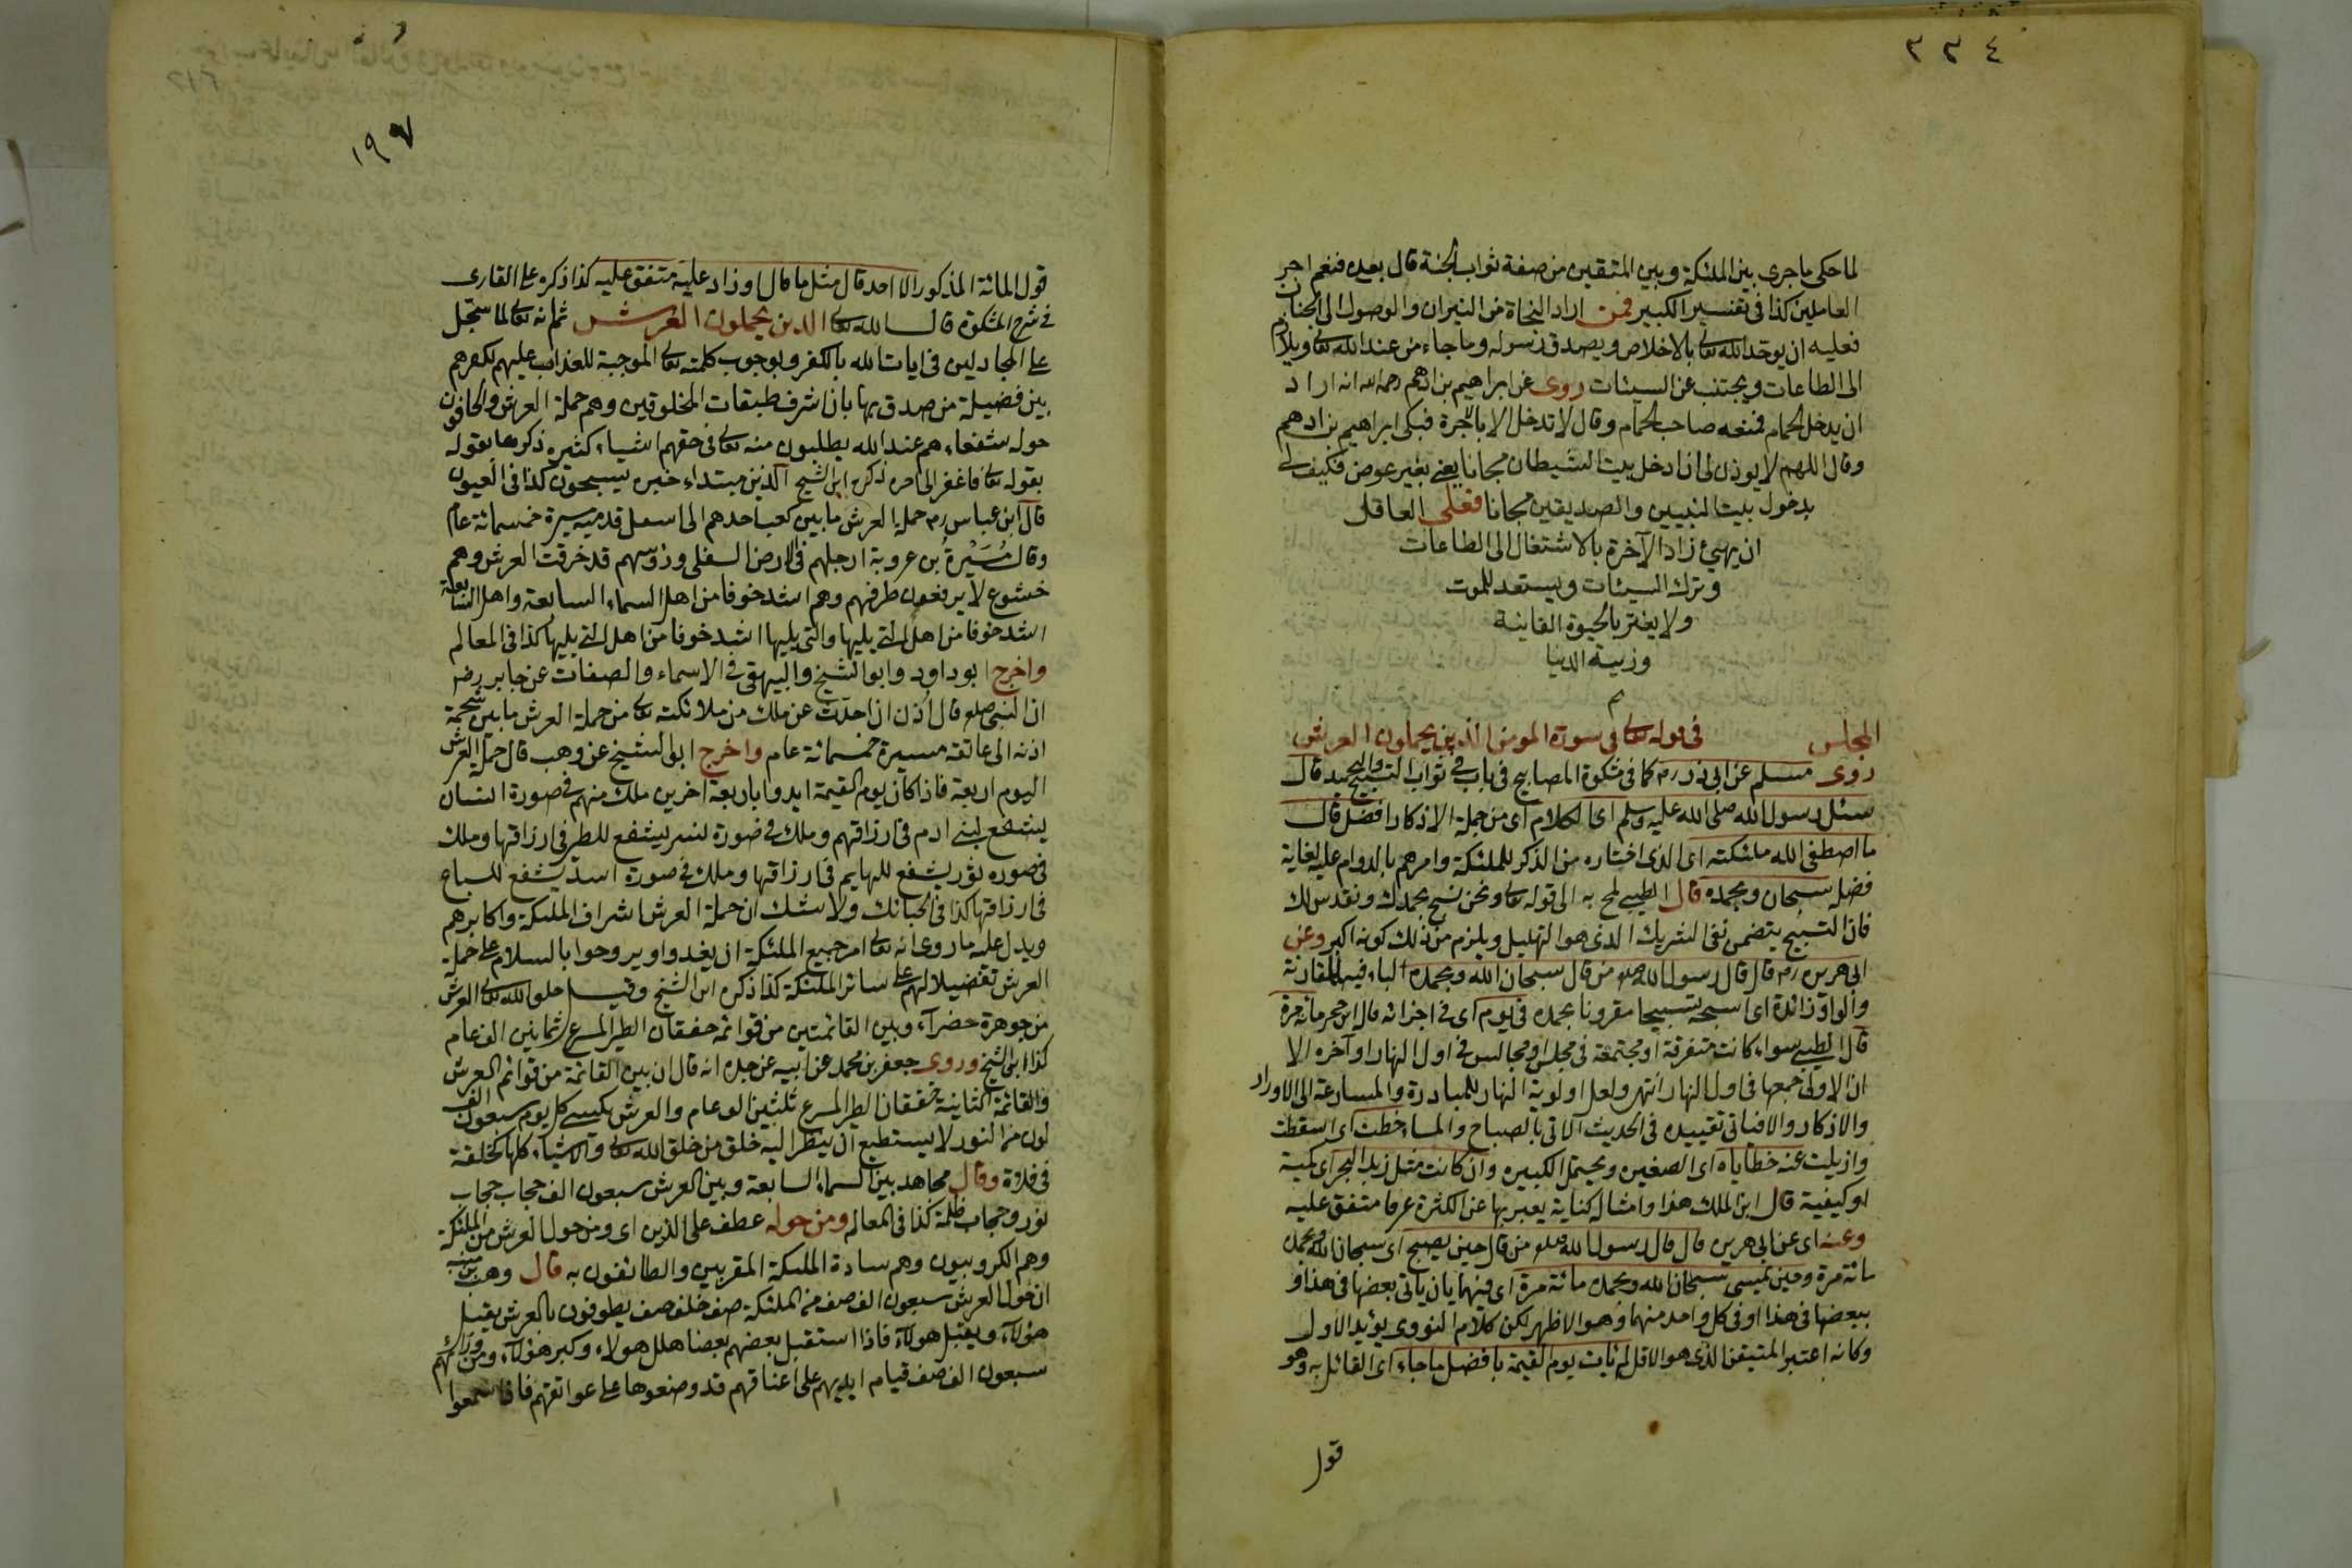 ٣٣٤
لما حكى ما جرى بين الملئكة وبين المتقين من صفة ثواب الجنة قال بعده فنعم اجر
العاملين كذا فى تفسير الكبير فمن اراد النجاة من النيران والوصول الى الجنان
فعليه ان يوحد الله تعالى بالاخلاص ويصدق رسوله وما جاء من عند الله تعالى ويلازم
الى الطاعات ويجتنب عن السيئات روى عن ابراهيم بن ادهم رحمه الله انه اراد
ان يدخل الحمام فمنعه صاحب الحمام وقال لا تدخل الا بالاجرة فبكى ابراهيم بن ادهم
وقال اللهم لا يوذن لى ان ادخل بيت الشيطان مجانا يعنى بغير عوض فكيف لى
بدخول بيت النبيين والصديقين مجانا فعلى العاقل
ان يهئ زاد الآخرة بالاشتغال الى الطاعات
وترك السيئات ويستعد للموت
ولا يغتر بالحيوة الفانية
وزينة الدنيا
م
المجلس فى قوله تعالى فى سورة المومن الذين يحملون العرش
روى مسلم عن ابى ذر رم كما فى مشكوة المصابيح فى باب فى ثواب التسبيح والتحميد قال
سئل رسول الله صلى الله عليه وسلم اى الكلام اى من جملة الاذكار افضل قال
ما اصطفى الله ملئكته اى الذى اختاره من الذكر للملئكة وامرهم بالدوام عليه لغاية
فضله سبحان وبحمده قال الطيبى لمح به الى قوله تعالى ونحن نسبح بحمدك ونقدس لك
فان التسبيح يتضمن نفى الشريك الذى هو التهليل ويلزم من ذلك كونه اكبر وعن
ابى هريرة رم قال قال رسول الله صلعم من قال سبحان الله وبحمده الباء فيه للمقارنة
والواو زائدة اى اسبحه تسبيحا مقرونا بحمده فى يوم اى فى اجزائه قال ابن حجر مائة مرة
قال الطيبى سواء كانت متفرقة او مجتمعة فى مجلس او مجالس فى اول النهار او آخره الا
ان الاولى جمعها فى اول النهار انتهى ولعل اولوية النهار للمبادرة والمسارعة الى الاوراد
والاذكار والا فياتى تقييده فى الحديث الآتى بالصباح والمساء حطت اى اسقطت
وازيلت عنه خطاياه اى الصغيرة ويحتمل الكبيرة وان كانت مثل زبد البحر اى كمية
او كيفية قال ابن الملك هذا وامثاله كناية يعبر بها عن الكثرة عرفا متفق عليه
وعنه اى عن ابى هريرة قال قال رسول الله صلعم من قال حين يصبح اى سبحان الله وبحمده
مائة مرة وحين يمسى سبحان الله وبحمده مائة مرة اى فيهما بان ياتى بعضها فى هذا و
ببعضها فى هذا او فى كل واحد منهما وهو الاظهر لكن كلام النووى يؤيد الاول
وكانه اعتبر المتيقن الذى هو الاقل لم يأت يوم القيمة بافضل مما جاء اى القائل به وهو
قول
١٩٧
قول المائة المذكور الا احد قال مثل ما قال او زاد عليه متفق عليه كذا ذكره على القارى
فى شرح المشكوة قال الله تعالى الذين يحملون العرش ثم انه تعالى لما سجل
على المجادلين فى ايات الله بالكفر وبوجوب كلمته تعالى الموجبة للعذاب عليهم لكفرهم
بين فضيلة من صدق بها بان اشرف طبقات المخلوقين وهم حملة العرش والحافون
حوله شفعاءهم عند الله يطلبون منه تعالى فى حقهم اشياء كثيرة ذكرها بقوله
بقوله تعالى فاغفر الى اخره ذكره ابن الشيخ الذين مبتداء خبره يسبحون كذا فى العيون
قال ابن عباس رم حملة العرش ما بين كعب احدهم الى اسفل قدميه مسيرة خمسمائة عام
وقال مُسَيْرة بن عروبة ارجلهم فى الارض السفلى ورؤسهم قد خرقت العرش وهم
خشوع لا يرفعون طرفهم وهم اشد خوفا من اهل السماء السابعة واهل السابعة
اشد خوفا من اهل التى يليها والتى يليها اشد خوفا من اهل التى يليها كذا فى المعالم
واخرج ابو داود وابو الشيخ والبيهقى فى الاسماء والصفات عن جابر رضه
ان النبى صلعم قال اُذن ان احدّث عن ملك من ملائكته تعالى من حملة العرش ما بين شحمة
اذنه الى عاتقه مسيرة خمسمائة عام واخرج ابو الشيخ عن وهب قال حملة العرش
اليوم اربعة فاذا كان يوم القيمة ايدوا باربعة اخرين ملك منهم فى صورة انسان
يشفع لبنى ادم فى ارزاقهم وملك فى صورة نسر يشفع للطير فى ارزاقها وملك
فى صورة ثور يشفع للبهايم فى ارزاقها وملك فى صورة اسد يشفع للسباع
فى ارزاقها كذا فى الحبائك ولا شك ان حملة العرش اشراف الملئكة واكابرهم
ويدل عليه ما روى انه تعالى امر جميع الملئكة ان يغدوا ويروحوا بالسلام على حملة
العرش تفضيلا لهم على سائر الملئكة كذا ذكره ابن الشيخ وقيل خلق الله تعالى العرش
من جوهرة خضرآء وبين القائمتين من قوائمه خفقان الطير المسرع ثمانين الف عام
كذا ابن الشيخ وروى جعفر بن محمد عن ابيه عن جده انه قال ان بين القائمة من قوائم العرش
والقائمة الثانية خفقان الطير المسرع ثلثين الف عام والعرش يكسى كل يوم سبعون الف
لون من النور لا يستطيع ان ينظر اليه خلق من خلق الله تعالى والاشياء كلها كحلقة
فى فلاة وقال مجاهد بين السماء السابعة وبين العرش سبعون الف حجاب حجاب
نور وحجاب ظلمة كذا فى المعالم ومن حوله عطف على الذين اى ومن حول العرش من الملئكة
وهم الكروبيون وهم سادة الملئكة المقربين والطائفون به قال وهب بن منبه
ان حول العرش سبعون الف صف من الملئكة صف خلف صف يطوفون بالعرش يقبل
هؤلآء ويقبل هؤلآء فاذا استقبل بعضهم بعضا هلل هولاء وكبر هؤلآء ومن ورائهم
سبعون الف صف قيام ايديهم على اعناقهم قد وضعوها على عواتقهم فاذا سمعوا